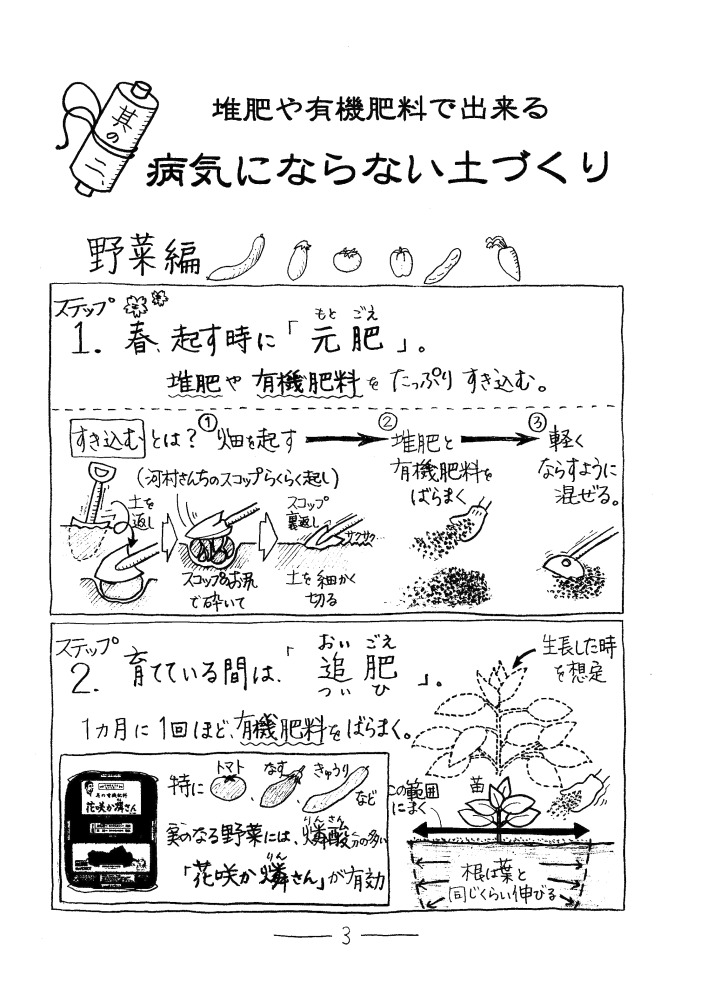 其の二
堆肥や有機肥料で出来る
病気にならない土づくり
野菜編
ステップ
1. 春、起す時に「元肥」。
もと ごえ
堆肥や有機肥料をたっぷりすき込む。
すき込むとは？
①畑を起す
②堆肥と
有機肥料を
ばらまく
③軽く
ならすように
混ぜる。
(河村さんちのスコップらくらく起し)
土を
返し
スコップのお尻
で砕いて
スコップ
裏返し
サクサク
土を細かく
切る
ステップ
2. 育てている間は、「追肥」。
おい ごえ
つい ひ
1カ月に1回ほど、有機肥料をばらまく。
生長した時
を想定
特に
トマト
、
なす
、
きゅうり
など
実のなる野菜には、燐酸分の多い
りんさん
「花咲か燐さん」が有効
りん
花咲か燐さん
この範囲
にまく
苗
根は葉と
同じくらい伸びる
3